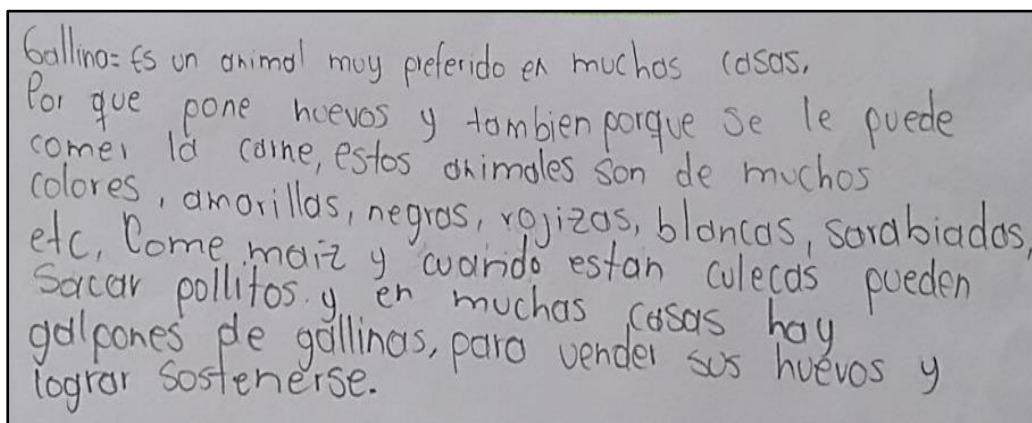 Gallina= Es un animal muy preferido en muchas casas.
Por que pone huevos y tambien porque se le puede
comer la carne, estos animales son de muchos
colores, amarillas, negras, rojizas, blancas, sarabiadas,
etc, Come maiz y cuando estan culecas pueden
Sacar pollitos. y en muchas casas hay
galpones de gallinas, para vender sus huevos y
lograr sostenerse.